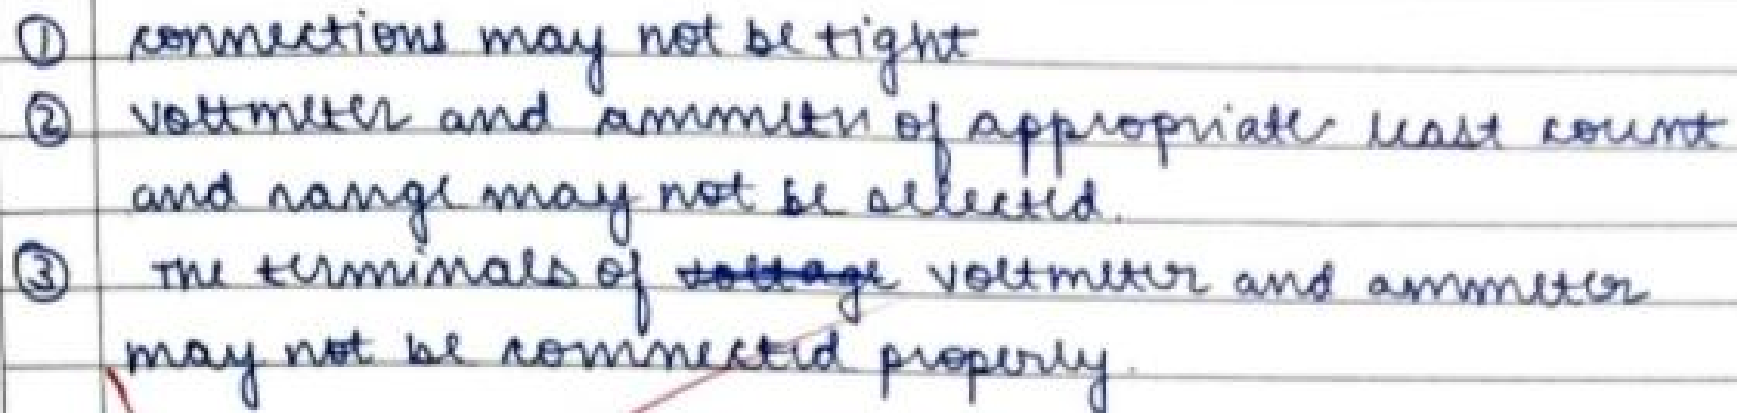 ① connections may not be tight
② voltmeter and ammeter of appropriate least count
and range may not be selected.
③ The terminals of voltage voltmeter and ammeter
may not be connected properly.